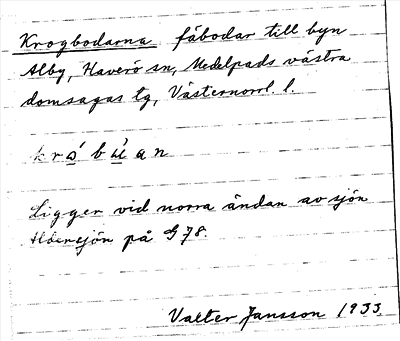 Krogbodarna fäbodar till byn
Alby, Haverö sn, Medelpads västra
domsagas tg, Västernorrl. l.
krǫ́bų̀an
Ligger vid norra ändan av sjön
på G 78.
Valter Jansson 1933